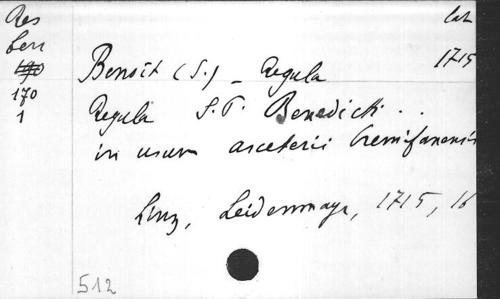 Res lat
Ben
190 Benoît (S.) _ Regula 1715
170
1 Regula S. P. Benedicti . .
in usum asceterii Cremifanensis
Linz, Leidenmayr, 1715, 16
512